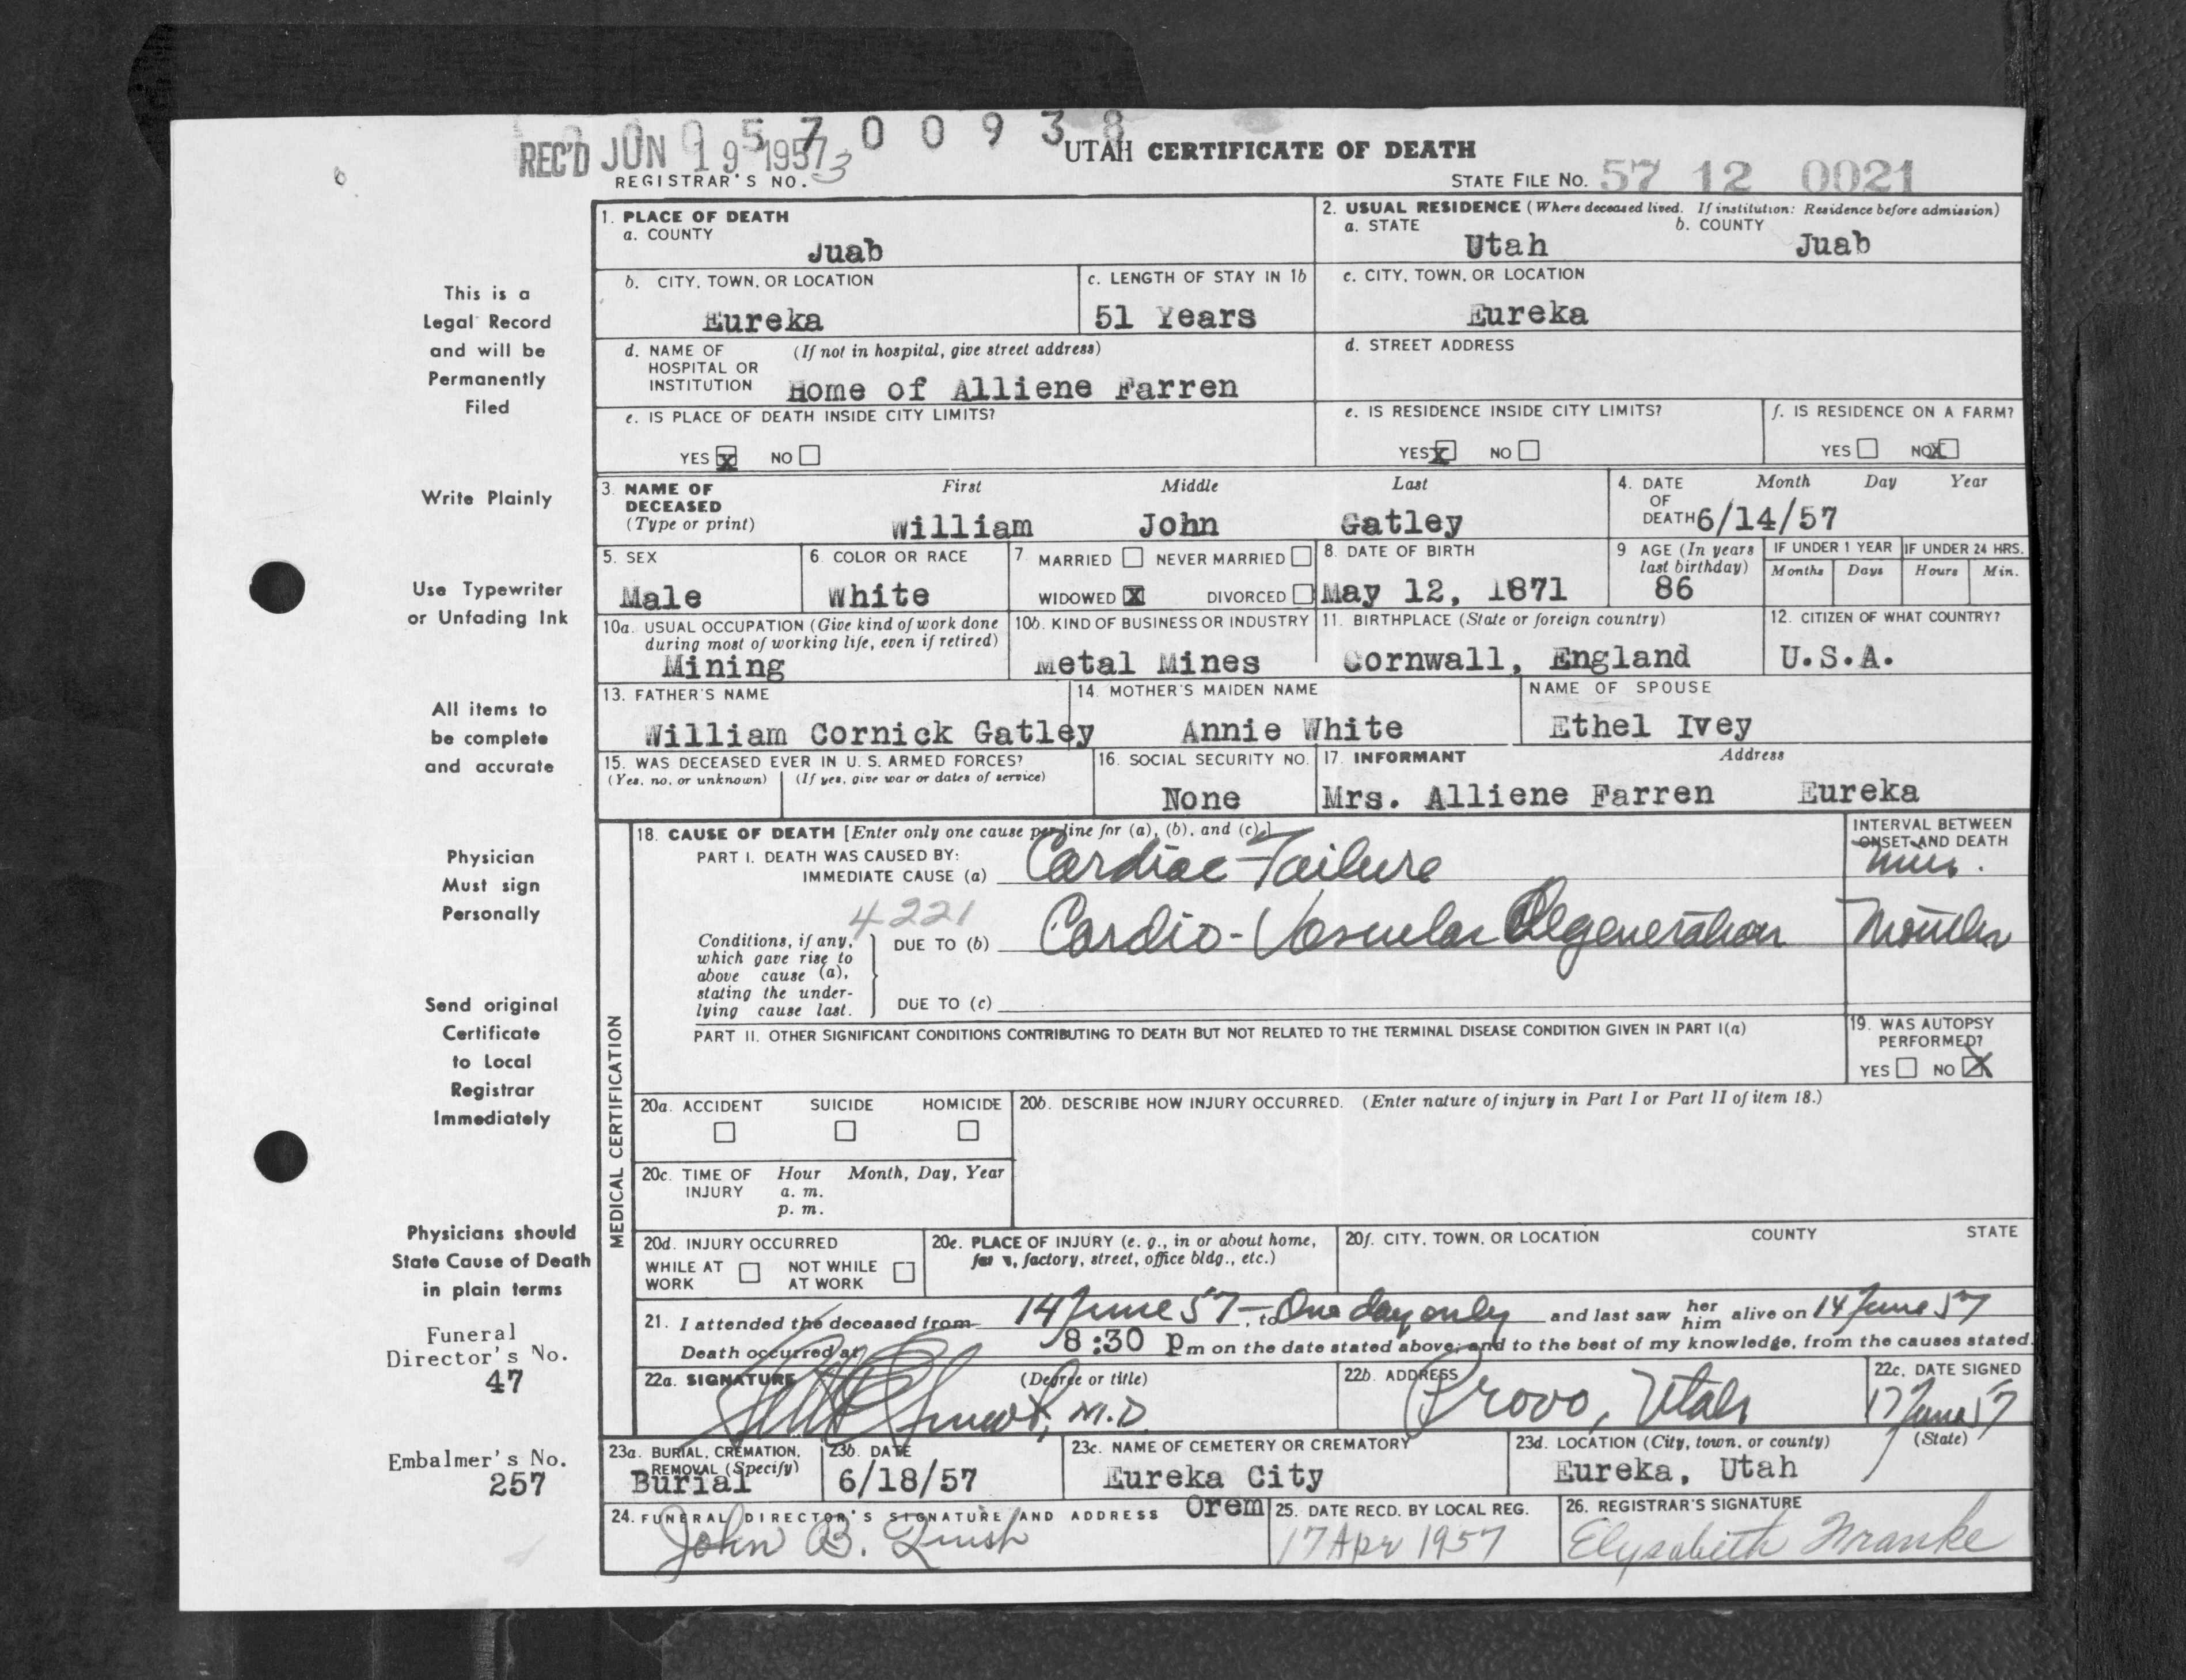 0 0 0 5 7 0 0 9 3 8
REC'D JUN 19 1957
UTAH CERTIFICATE OF DEATH
REGISTRAR'S NO. 3
STATE FILE NO. 57 12 0021
This is a
Legal Record
and will be
Permanently
Filed
Write Plainly
Use Typewriter
or Unfading Ink
All items to
be complete
and accurate
Physician
Must sign
Personally
Send original
Certificate
to Local
Registrar
Immediately
Physicians should
State Cause of Death
in plain terms
Funeral
Director's No.
47
Embalmer's No.
257
1. PLACE OF DEATH
a. COUNTY
Juab
2. USUAL RESIDENCE (Where deceased lived. If institution: Residence before admission)
a. STATE
Utah
b. COUNTY
Juab
b. CITY, TOWN, OR LOCATION
Eureka
c. LENGTH OF STAY IN 1b
51 Years
c. CITY, TOWN, OR LOCATION
Eureka
d. NAME OF (If not in hospital, give street address)
HOSPITAL OR
INSTITUTION Home of Alliene Farren
d. STREET ADDRESS
e. IS PLACE OF DEATH INSIDE CITY LIMITS?
YES X NO
e. IS RESIDENCE INSIDE CITY LIMITS?
YES X NO
f. IS RESIDENCE ON A FARM?
YES NO X
3. NAME OF
DECEASED
(Type or print)
First Middle Last
William John Gatley
4. DATE Month Day Year
OF
DEATH 6/14/57
5. SEX
Male
6. COLOR OR RACE
White
7. MARRIED NEVER MARRIED
WIDOWED X DIVORCED
8. DATE OF BIRTH
May 12, 1871
9 AGE (In years
last birthday)
86
IF UNDER 1 YEAR
Months Days
IF UNDER 24 HRS.
Hours Min.
10a. USUAL OCCUPATION (Give kind of work done
during most of working life, even if retired)
Mining
10b. KIND OF BUSINESS OR INDUSTRY
Metal Mines
11. BIRTHPLACE (State or foreign country)
Cornwall, England
12. CITIZEN OF WHAT COUNTRY?
U.S.A.
13. FATHER'S NAME
William Cornick Gatley
14. MOTHER'S MAIDEN NAME
Annie White
NAME OF SPOUSE
Ethel Ivey
15. WAS DECEASED EVER IN U. S. ARMED FORCES?
(Yes, no, or unknown) (If yes, give war or dates of service)
16. SOCIAL SECURITY NO.
None
17. INFORMANT Address
Mrs. Alliene Farren Eureka
MEDICAL CERTIFICATION
18. CAUSE OF DEATH [Enter only one cause per line for (a), (b), and (c).]
PART I. DEATH WAS CAUSED BY:
IMMEDIATE CAUSE (a) Cardiac Failure
INTERVAL BETWEEN
ONSET AND DEATH
Min.
4221
Conditions, if any,
which gave rise to
above cause (a),
stating the under-
lying cause last.
DUE TO (b) Cardio-Vascular Degeneration Months
DUE TO (c)
PART II. OTHER SIGNIFICANT CONDITIONS CONTRIBUTING TO DEATH BUT NOT RELATED TO THE TERMINAL DISEASE CONDITION GIVEN IN PART I(a)
19. WAS AUTOPSY
PERFORMED?
YES NO X
20a. ACCIDENT SUICIDE HOMICIDE
20b. DESCRIBE HOW INJURY OCCURRED. (Enter nature of injury in Part I or Part II of item 18.)
20c. TIME OF Hour Month, Day, Year
INJURY a. m.
p. m.
20d. INJURY OCCURRED
WHILE AT NOT WHILE
WORK AT WORK
20e. PLACE OF INJURY (e. g., in or about home,
farm, factory, street, office bldg., etc.)
20f. CITY, TOWN, OR LOCATION COUNTY STATE
21. I attended the deceased from 14 June 57 -, to One day only and last saw her him alive on 14 June 57
Death occurred at 8:30 P m on the date stated above; and to the best of my knowledge, from the causes stated.
22a. SIGNATURE (Degree or title)
M.D.
22b. ADDRESS
Provo, Utah
22c. DATE SIGNED
17 June 57
23a. BURIAL, CREMATION,
REMOVAL (Specify)
Burial
23b. DATE
6/18/57
23c. NAME OF CEMETERY OR CREMATORY
Eureka City
23d. LOCATION (City, town, or county) (State)
Eureka, Utah
24. FUNERAL DIRECTOR'S SIGNATURE AND ADDRESS Orem
John B.
25. DATE RECD. BY LOCAL REG.
17 Apr 1957
26. REGISTRAR'S SIGNATURE
Elysabeth Franke